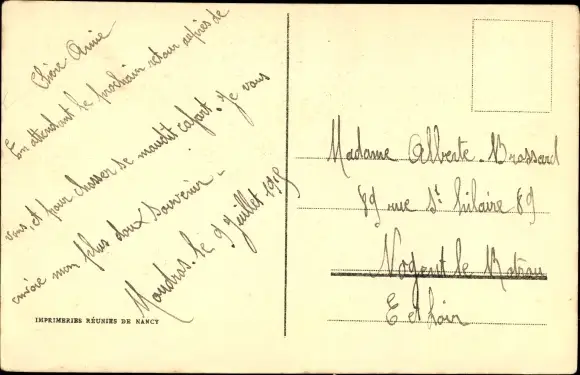 Chère Amie
En attendant le prochain retour auprès de
vous, et pour chasser se maudit cafart. Je vous
envoie mon plus doux souvenir -
Moudros. le 9 Juillet 1918
IMPRIMERIES RÉUNIES DE NANCY
Madame Alberte. Brossard
89 rue St hilaire 89
Nogent le Rotrou
E et Loir